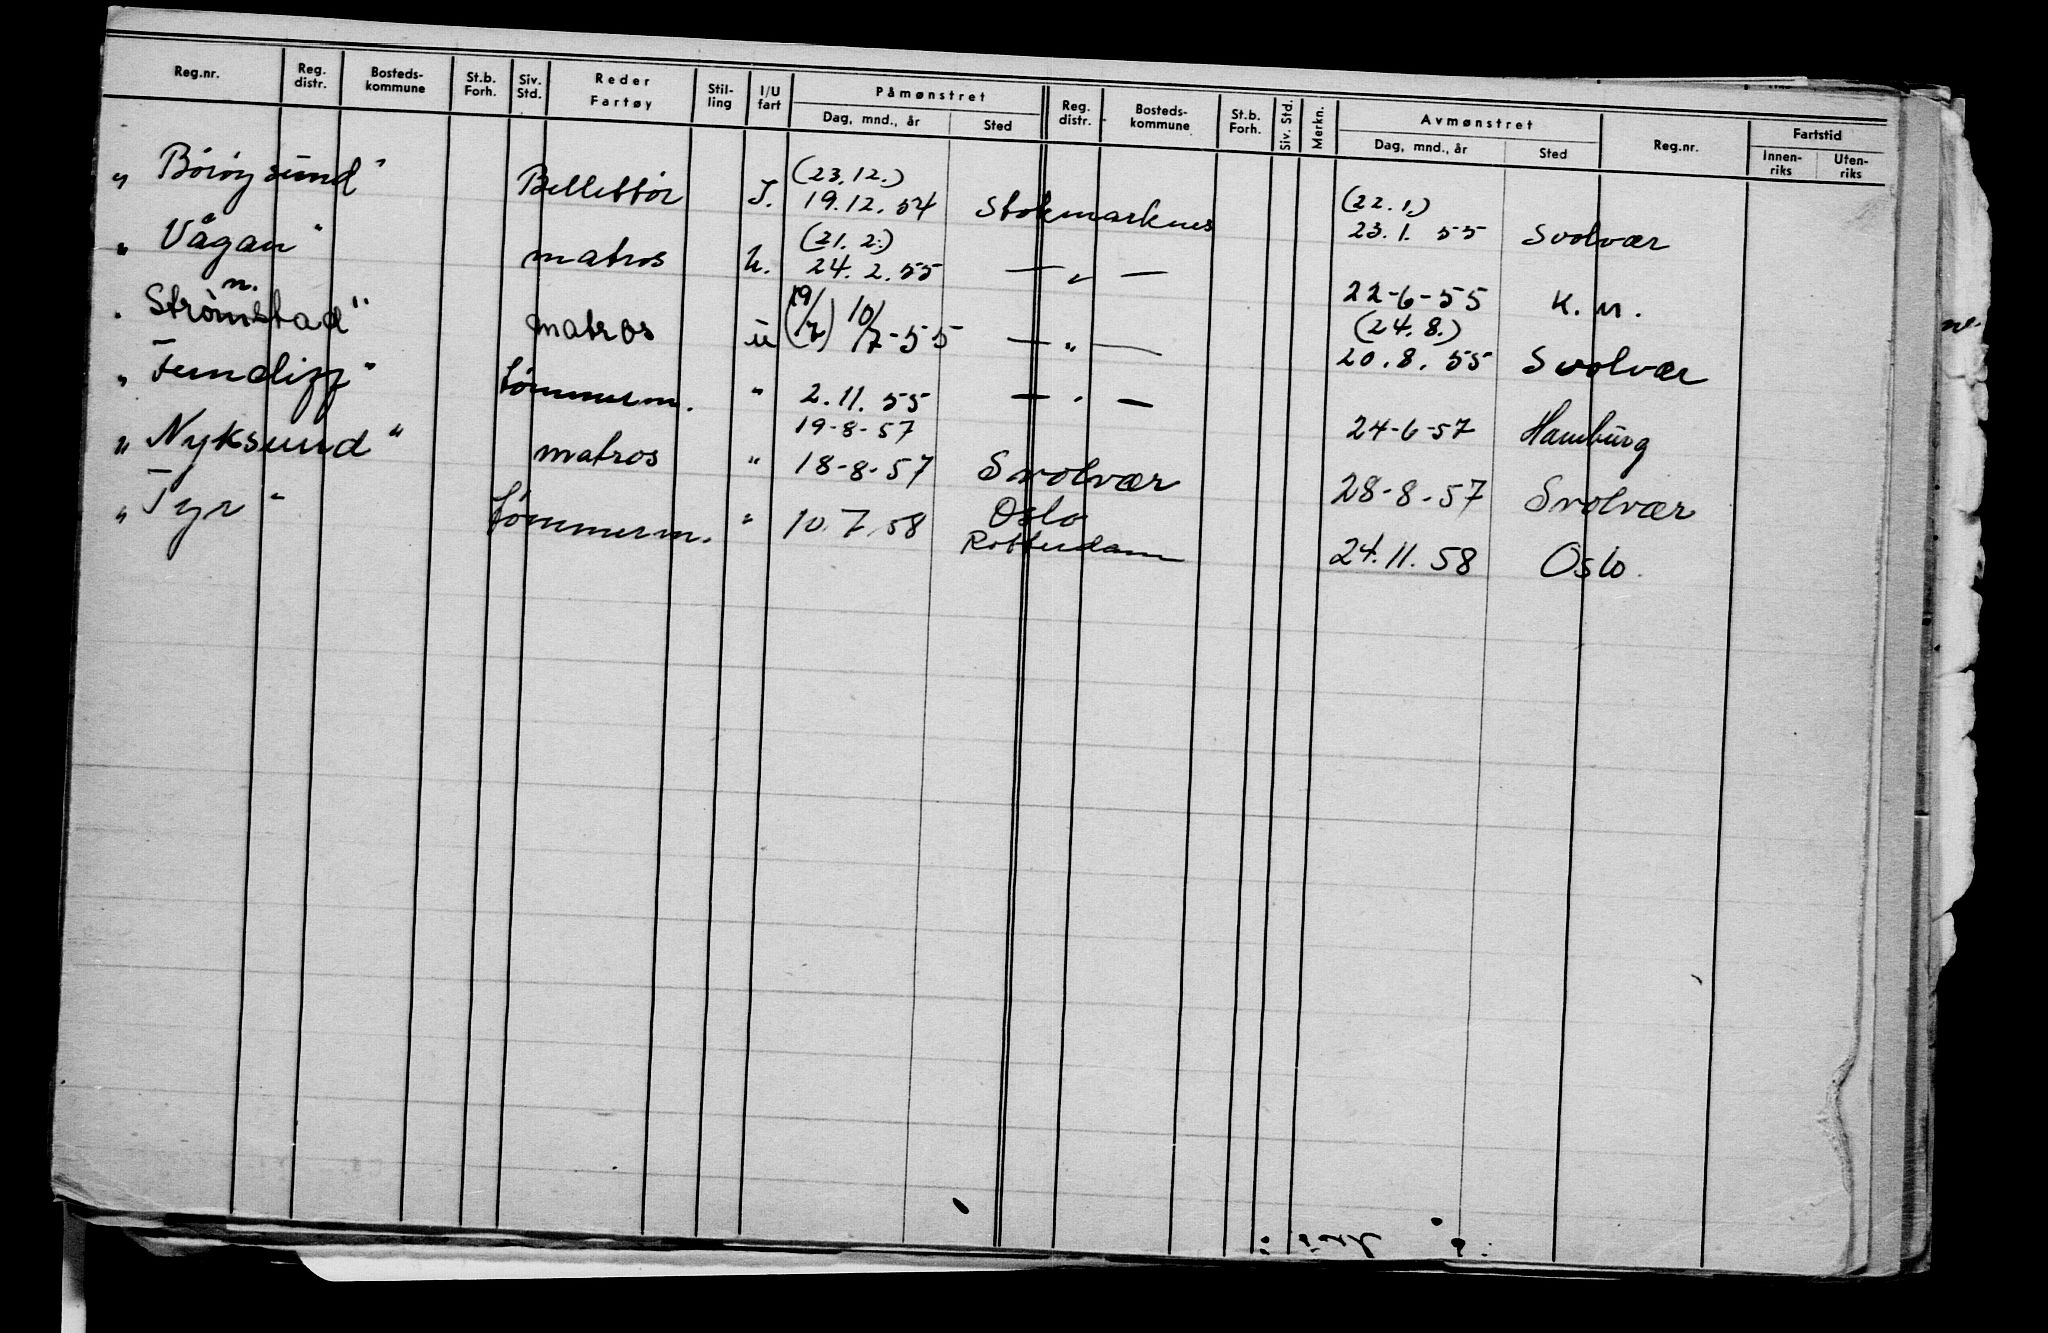 Reg.nr. Reg. distr. Bosteds-kommune St.b. Forh. Siv. Std. Reder Fartøy Stil-ling I/U fart Påmønstret Dag, mnd., år Sted Reg. distr. Bosteds-kommune St.b. Forh. Siv. Std. Merkn. Avmønstret Dag, mnd., år Sted Reg.nr. Fartstid Innen-riks Uten-riks
(23.12.) (22.1.)
„ Börøysund" Billettør I. 19.12.54 Stokmarknes 23.1.55 Svolvær
(21.2.)
„ Vågan" matros U. 24.2.55 — „ — 22-6-55 K.M.
n. (24.8.)
„ Strømstad" matros u (19/7) 10/7-55 — „ — 20.8.55 Svolvær
„ " tømmerm. " 2.11.55 — " — 24-6-57 Hamburg
19-8-57
„ Nyksund" matros " 18-8-57 Svolvær 28-8-57 Svolvær
„ Tyr" tømmerm. " 10.7.58 Oslo 24.11.58 Oslo.
Rotterdam